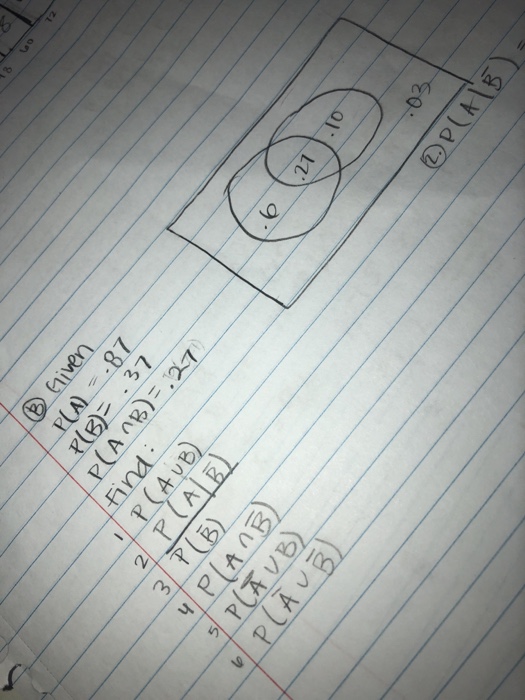 Ⓑ Given
P(A) = .87
P(B) = .37
P(A∩B) = .27
Find:
1 P(A∪B)
2 P(A|B̄)
3 P(B̄)
4 P(A∩B̄)
5 P(Ā∪B)
6 P(Ā∪B̄)
.6 .27 .10
.03
② P(A|B̄) =
60 72